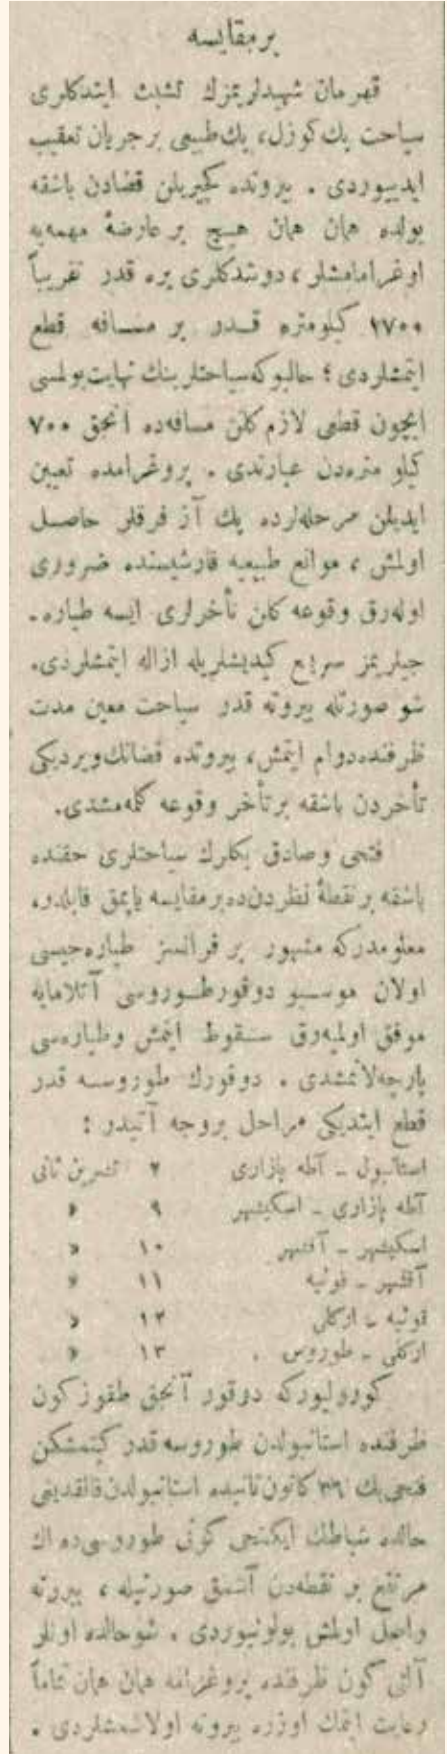 بر مقایسه
قهرمان شهیدلریمزك تشبث ایتدکلری
سیاحت پك کوزل، پك طبیعی بر جریان تعقیب
ایدییوردی . بیروتده کچیریلن قضادن باشقه
یولده همان همان هیچ بر عارضهٔ مهمه‌یه
اوغرامامشلر ، دوشدکلری یره قدر تقریباً
۱۷۰۰ کیلومتره قدر بر مسافه قطع
ایتمشلردی ؛ حالبوکه سیاحتلرینك نهایت بولمسی
ایچون قطعی لازم کلن مسافه‌ده آنجق ۷۰۰
کیلو متره‌دن عبارتدی . پروغرامده تعیین
ایدیلن مرحله‌لرده پك آز فرقلر حاصل
اولمش ، موانع طبیعیه قارشیسنده ضروری
اوله‌رق وقوعه کلن تأخرلری ایسه طیاره‌-
جیلریمز سریع کیدیشلریله ازاله ایتمشلردی.
شو صورتله بیروته قدر سیاحت معین مدت
ظرفنده دوام ایتمش، بیروتده قضانك ویردیکی
تأخردن باشقه بر تأخر وقوعه کلمه‌مشدی.
فتحی و صادق بکلرك سیاحتلری حقنده
باشقه بر نقطهٔ نظردن ده بر مقایسه یاپمق قابلدر.
معلومدرکه مشهور بر فرانسز طیاره‌جیسی
اولان موسیو دوقور طوروسی آتلامایه
موفق اولمیه‌رق سقوط ایتمش وطیاره‌سی
پارچه‌لانمشدی . دوقورك طوروسه قدر
قطع ایتدیکی مراحل بروجه آتیدر :
استانبول ـ آطه پازاری ۲ تشرین ثانی
آطه پازاری ـ اسکیشهر ۹ »
اسکیشهر ـ آقشهر ۱۰ »
آقشهر ـ قونیه ۱۱ »
قونیه ـ ارکلی ۱۲ »
ارکلی ـ طوروس . ۱۳ »
کورولیورکه دوقور آنجق طقوز کون
ظرفنده استانبولدن طوروسه قدر کیتمشکن
فتحی بك ۲۶ کانون ثانیده استانبولدن قالقدیغی
حالده شباطك ایکنجی کونی طوروسی ده اك
مرتفع بر نقطه‌دن آشمق صورتیله ، بیروته
واصل اولمش بولونیوردی . شو حالده اونلر
آلتی کون ظرفنده پروغرامه همان همان تماماً
رعایت ایتمك اوزره بیروته اولاشمشلردی .